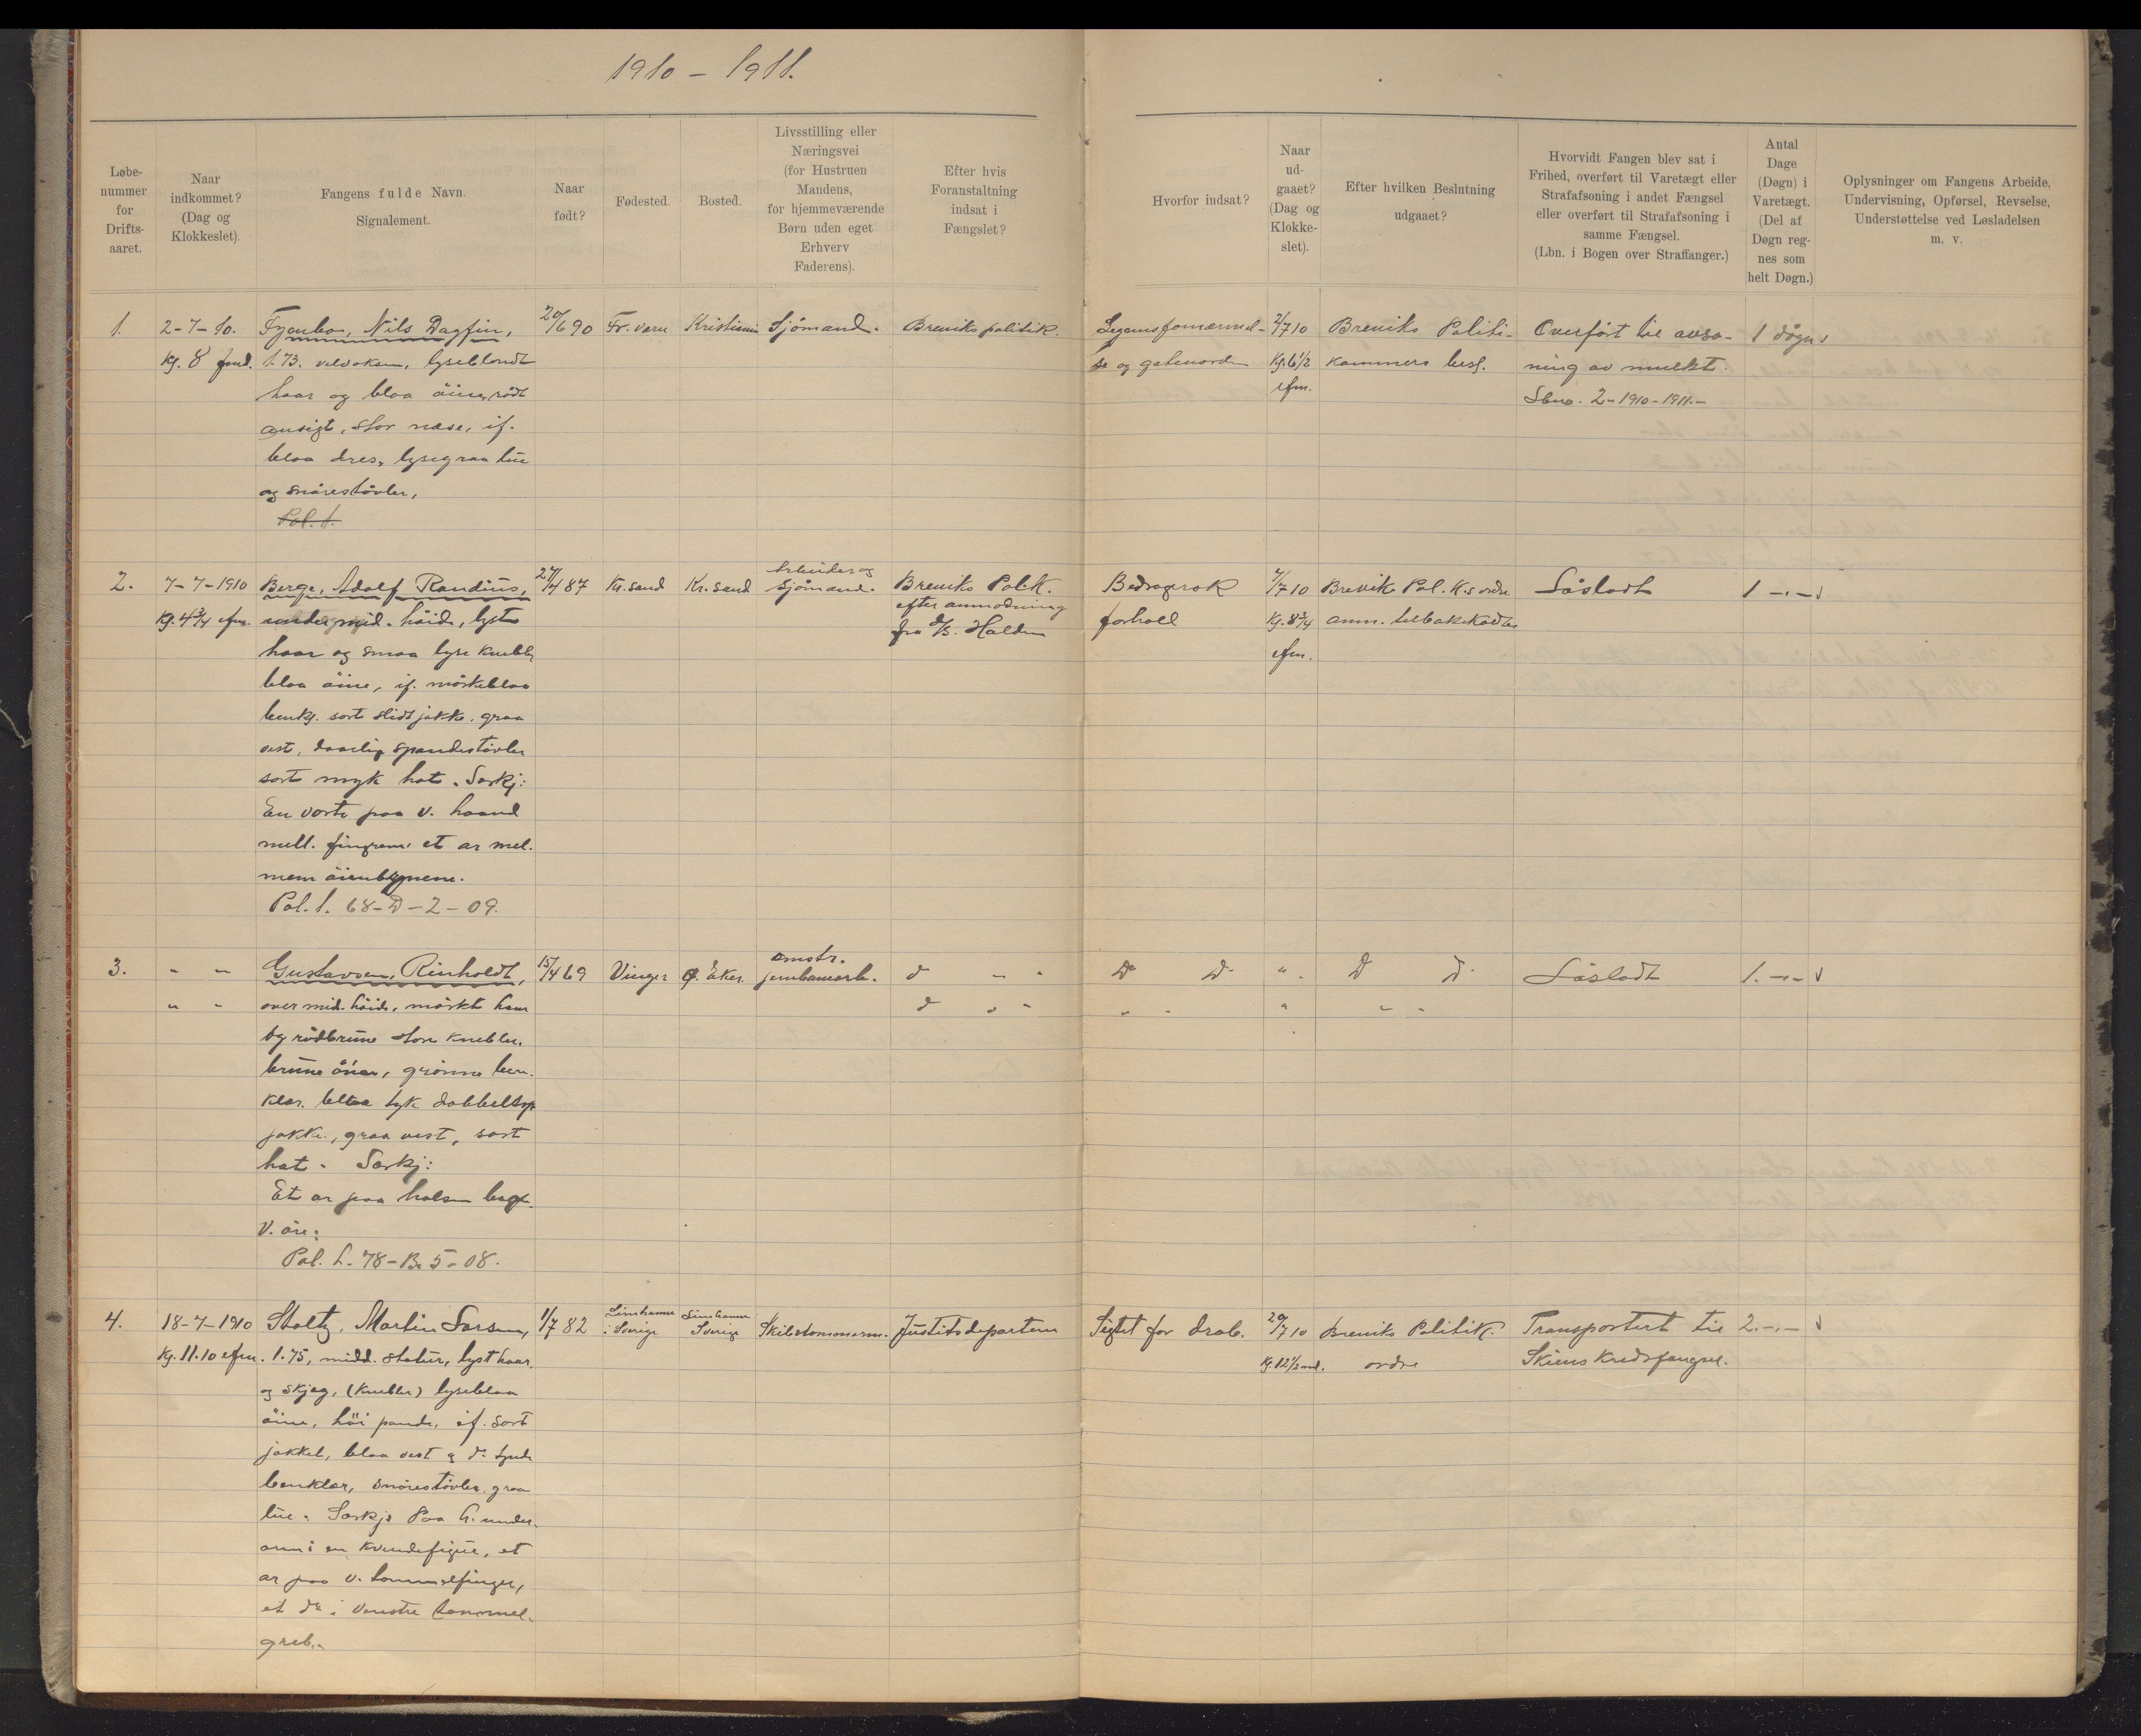 1910 – 1911.
Løbe-
nummer
for
Drifts-
aaret.
Naar
indkommet?
(Dag og
Klokkeslet).
Fangens fulde Navn.
Signalement.
Naar
født?
Fødested.
Bosted.
Livsstilling eller
Næringsvei
(for Hustruen
Mandens,
for hjemmeværende
Børn uden eget
Erhverv
Faderens).
Efter hvis
Foranstaltning
indsat i
Fængslet?
Hvorfor indsat?
Naar
ud-
gaaet?
(Dag og
Klokke-
slet).
Efter hvilken Beslutning
udgaaet?
Hvorvidt Fangen blev sat i
Frihed, overført til Varetægt eller
Strafafsoning i andet Fængsel
eller overført til Strafafsoning i
samme Fængsel.
(Lbn. i Bogen over Straffanger.)
Antal
Dage
(Døgn) i
Varetægt.
(Del af
Døgn reg-
nes som
helt Døgn.)
Oplysninger om Fangens Arbeide,
Undervisning, Opførsel, Revselse,
Understøttelse ved Løsladelsen
m. v.
1.
2-7-10.
Kg. 8 fmd.
Nils Dagfin,
1.73. velvoksen, lyseblondt
haar og bloa öine, rödt
ansigt, stor næse, if.
bloa dres, lysegraa lue
og snörestövler,
Pol. f.
20/6 90
Fr. værn
Kristiania
Sjömand.
Breviks politik.
og gateuorden
2/7 10
Kg. 6 1/2
efm.
Breviks Politi-
kammers besl.
Overfört til avso-
ning av mulkt.
Lbno. 2-1910-1911.-
1 dögn
2.
7-7-1910
Kg. 4 3/4 efm.
Berge, Adolf Randius,
under mid. höide, lyst
haar og smaa lyse knebler
bloa öine, if. mörkebloa
benkl. sort slidt jakke. graa
vest, daarlig spandestövler
sort myk hat. Særkj:
En vorte paa v. haand
mell. fingrene et ar mel.
mem öienbrynene.
Pol. f. 68-D-2-09.
27/4 87
Kr. sand
Kr. sand
Arbeider og
Sjömand.
Breviks Pol.K.
efter anmodning
fra d/s. Halden
Bedragersk
forhold
7/7 10
Kg. 8 3/4
efm.
Brevik Pol. K.s ordre
anm. tilbakekaldtes
Lösladt
1 -„-
3.
„ „
„ „
Gustavsen, Rinholdt,
over mid. höide, mörkt haar
og rödbrune store knebler.
brune öine, grönne ben-
klær. bloa tyk dobbeltsp.
jakke, graa vest, sort
hat. Særkj:
Et ar paa halsen bag
v. öre.
Pol. f. 78-B. 5-08.
15/4 69
Vinger
Ö. Aker.
anstr.
jernbanearb.
d „ „
d „ „
Do Do
„ „
„
„
D D
„ „
Lösladt
1. -„-
4.
18-7-1910
Kg. 11.10 efm.
Stoltz, Martin Larsen,
1.75, midd. statur, lyst haar
og skjeg, (knebler) lysebloa
öine, höi pande, if. sort
jakket, bloa vest & do tynde
benklær, snörestövler, graa
lue. Særkj: Paa h. under-
arm i en kvindefigur, et
ar paa v. tommelfinger,
et do i venstre tommel-
greb.
1/7 82
Limhamn
i Sverige
Limhamn
Sverige
Skibstömmerm.
Justitsdepartem
Sigtet for drab.
20/7 10
Kg. 12 1/2 md.
Breviks PolitiK.
ordre
Transportert til
Skiens Kredsfængsel.
2. -„-